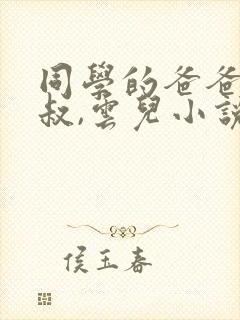 同學的爸爸
叔,雲兒小說
侯玉春